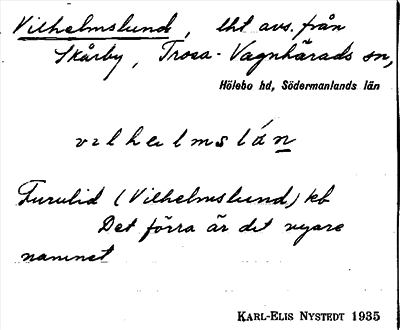 Vilhelmslund, lht avs. från
Skårby, Trosa-Vagnhärads sn,
Hölebo hd, Södermanlands län
vılhelmslán
Furulid (Vilhelmslund) kb
Det förra är det nyare
namnet
KARL-ELIS NYSTEDT 1935